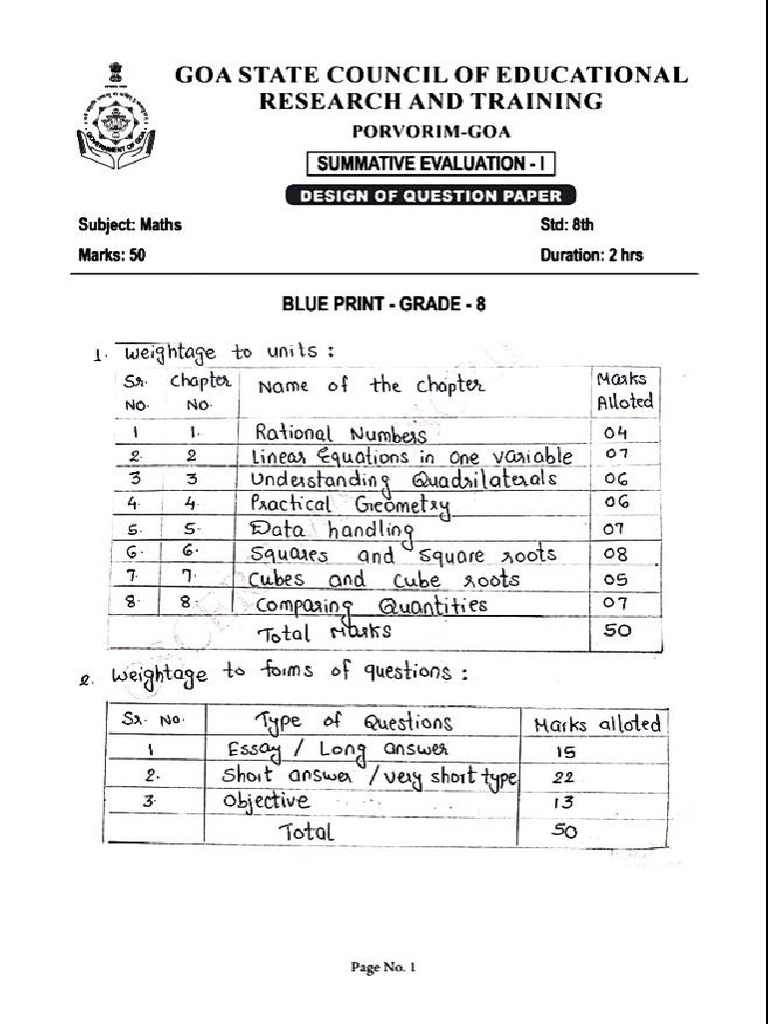 GOA STATE COUNCIL OF EDUCATIONAL
RESEARCH AND TRAINING
PORVORIM-GOA
GOVERNMENT OF GOA
SUMMATIVE EVALUATION - I
DESIGN OF QUESTION PAPER
Subject: Maths Std: 8th
Marks: 50 Duration: 2 hrs
BLUE PRINT - GRADE - 8
1. Weightage to units :
Sr. No. Chapter No. Name of the chapter Marks Alloted
1 1. Rational Numbers 04
2. 2 Linear Equations in one variable 07
3 3 Understanding Quadrilaterals 06
4. 4. Practical Geometry 06
5. 5. Data handling 07
6. 6. Squares and square roots 08
7. 7. Cubes and cube roots 05
8. 8. Comparing Quantities 07
Total Marks 50
2. Weightage to forms of questions :
Sr. No. Type of Questions Marks alloted
1 Essay / Long answer 15
2. Short answer / very short type 22
3. Objective 13
Total 50
Page No. 1